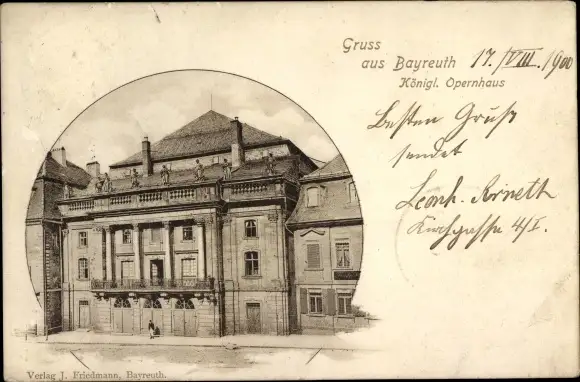 Gruss
aus Bayreuth 17./VIII. 1900
Königl. Opernhaus
Besten Gruß
sendet
Leonh. Arneth
Kirchgasse 4/I.
Verlag J. Friedmann, Bayreuth.